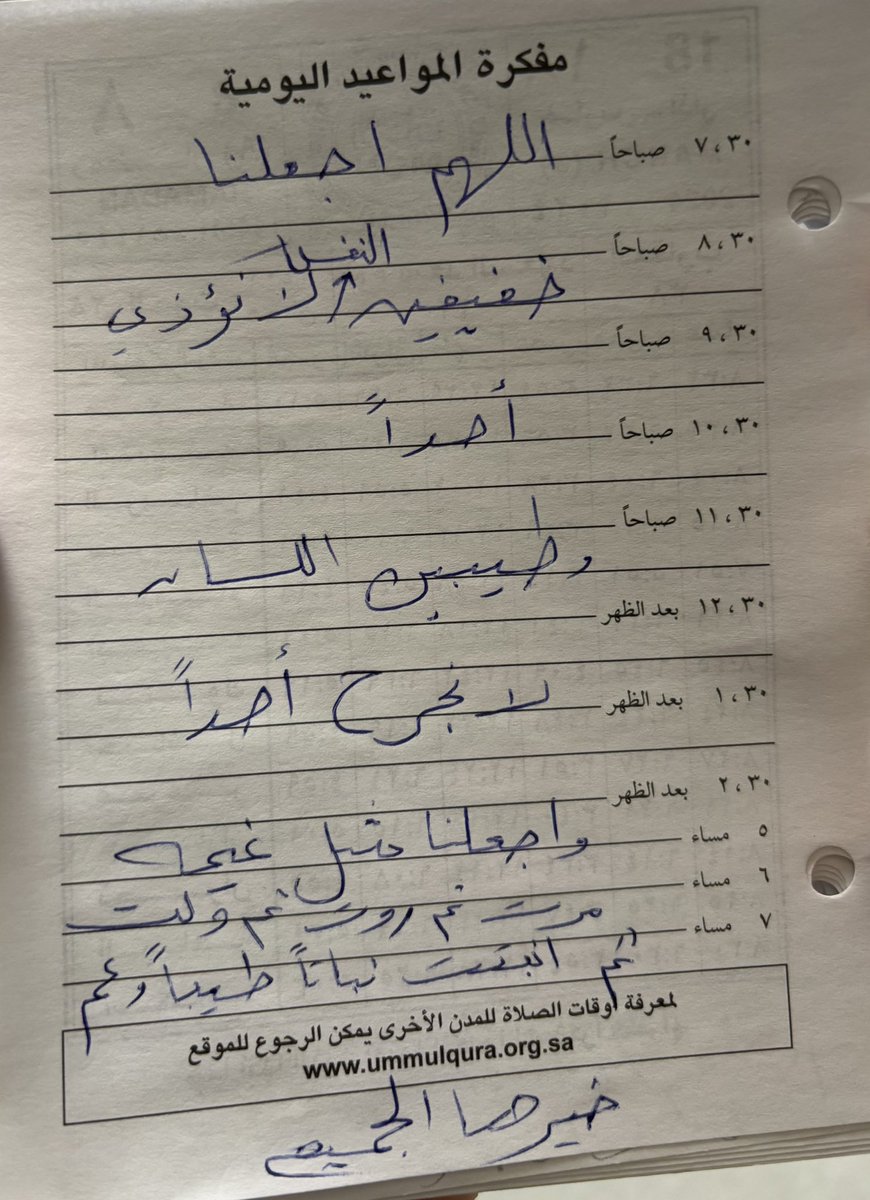 مفكرة المواعيد اليومية
٧،٣٠ صباحاً اللهم اجعلنا
٨،٣٠ صباحاً النفس
خفيفين لا نؤذي
٩،٣٠ صباحاً
١٠،٣٠ صباحاً أحداً
١١،٣٠ صباحاً
وطيبين اللسان
١٢،٣٠ بعد الظهر
١،٣٠ بعد الظهر لا نجرح أحداً
٢،٣٠ بعد الظهر
٥ مساء واجعلنا مثل غيمه
٦ مساء مرت ثم روت ثم ولت
٧ مساء
ثم انبتت نباتاً طيباً وعم
لمعرفة أوقات الصلاة للمدن الأخرى يمكن الرجوع للموقع
www.ummulqura.org.sa
خيرها الجميع